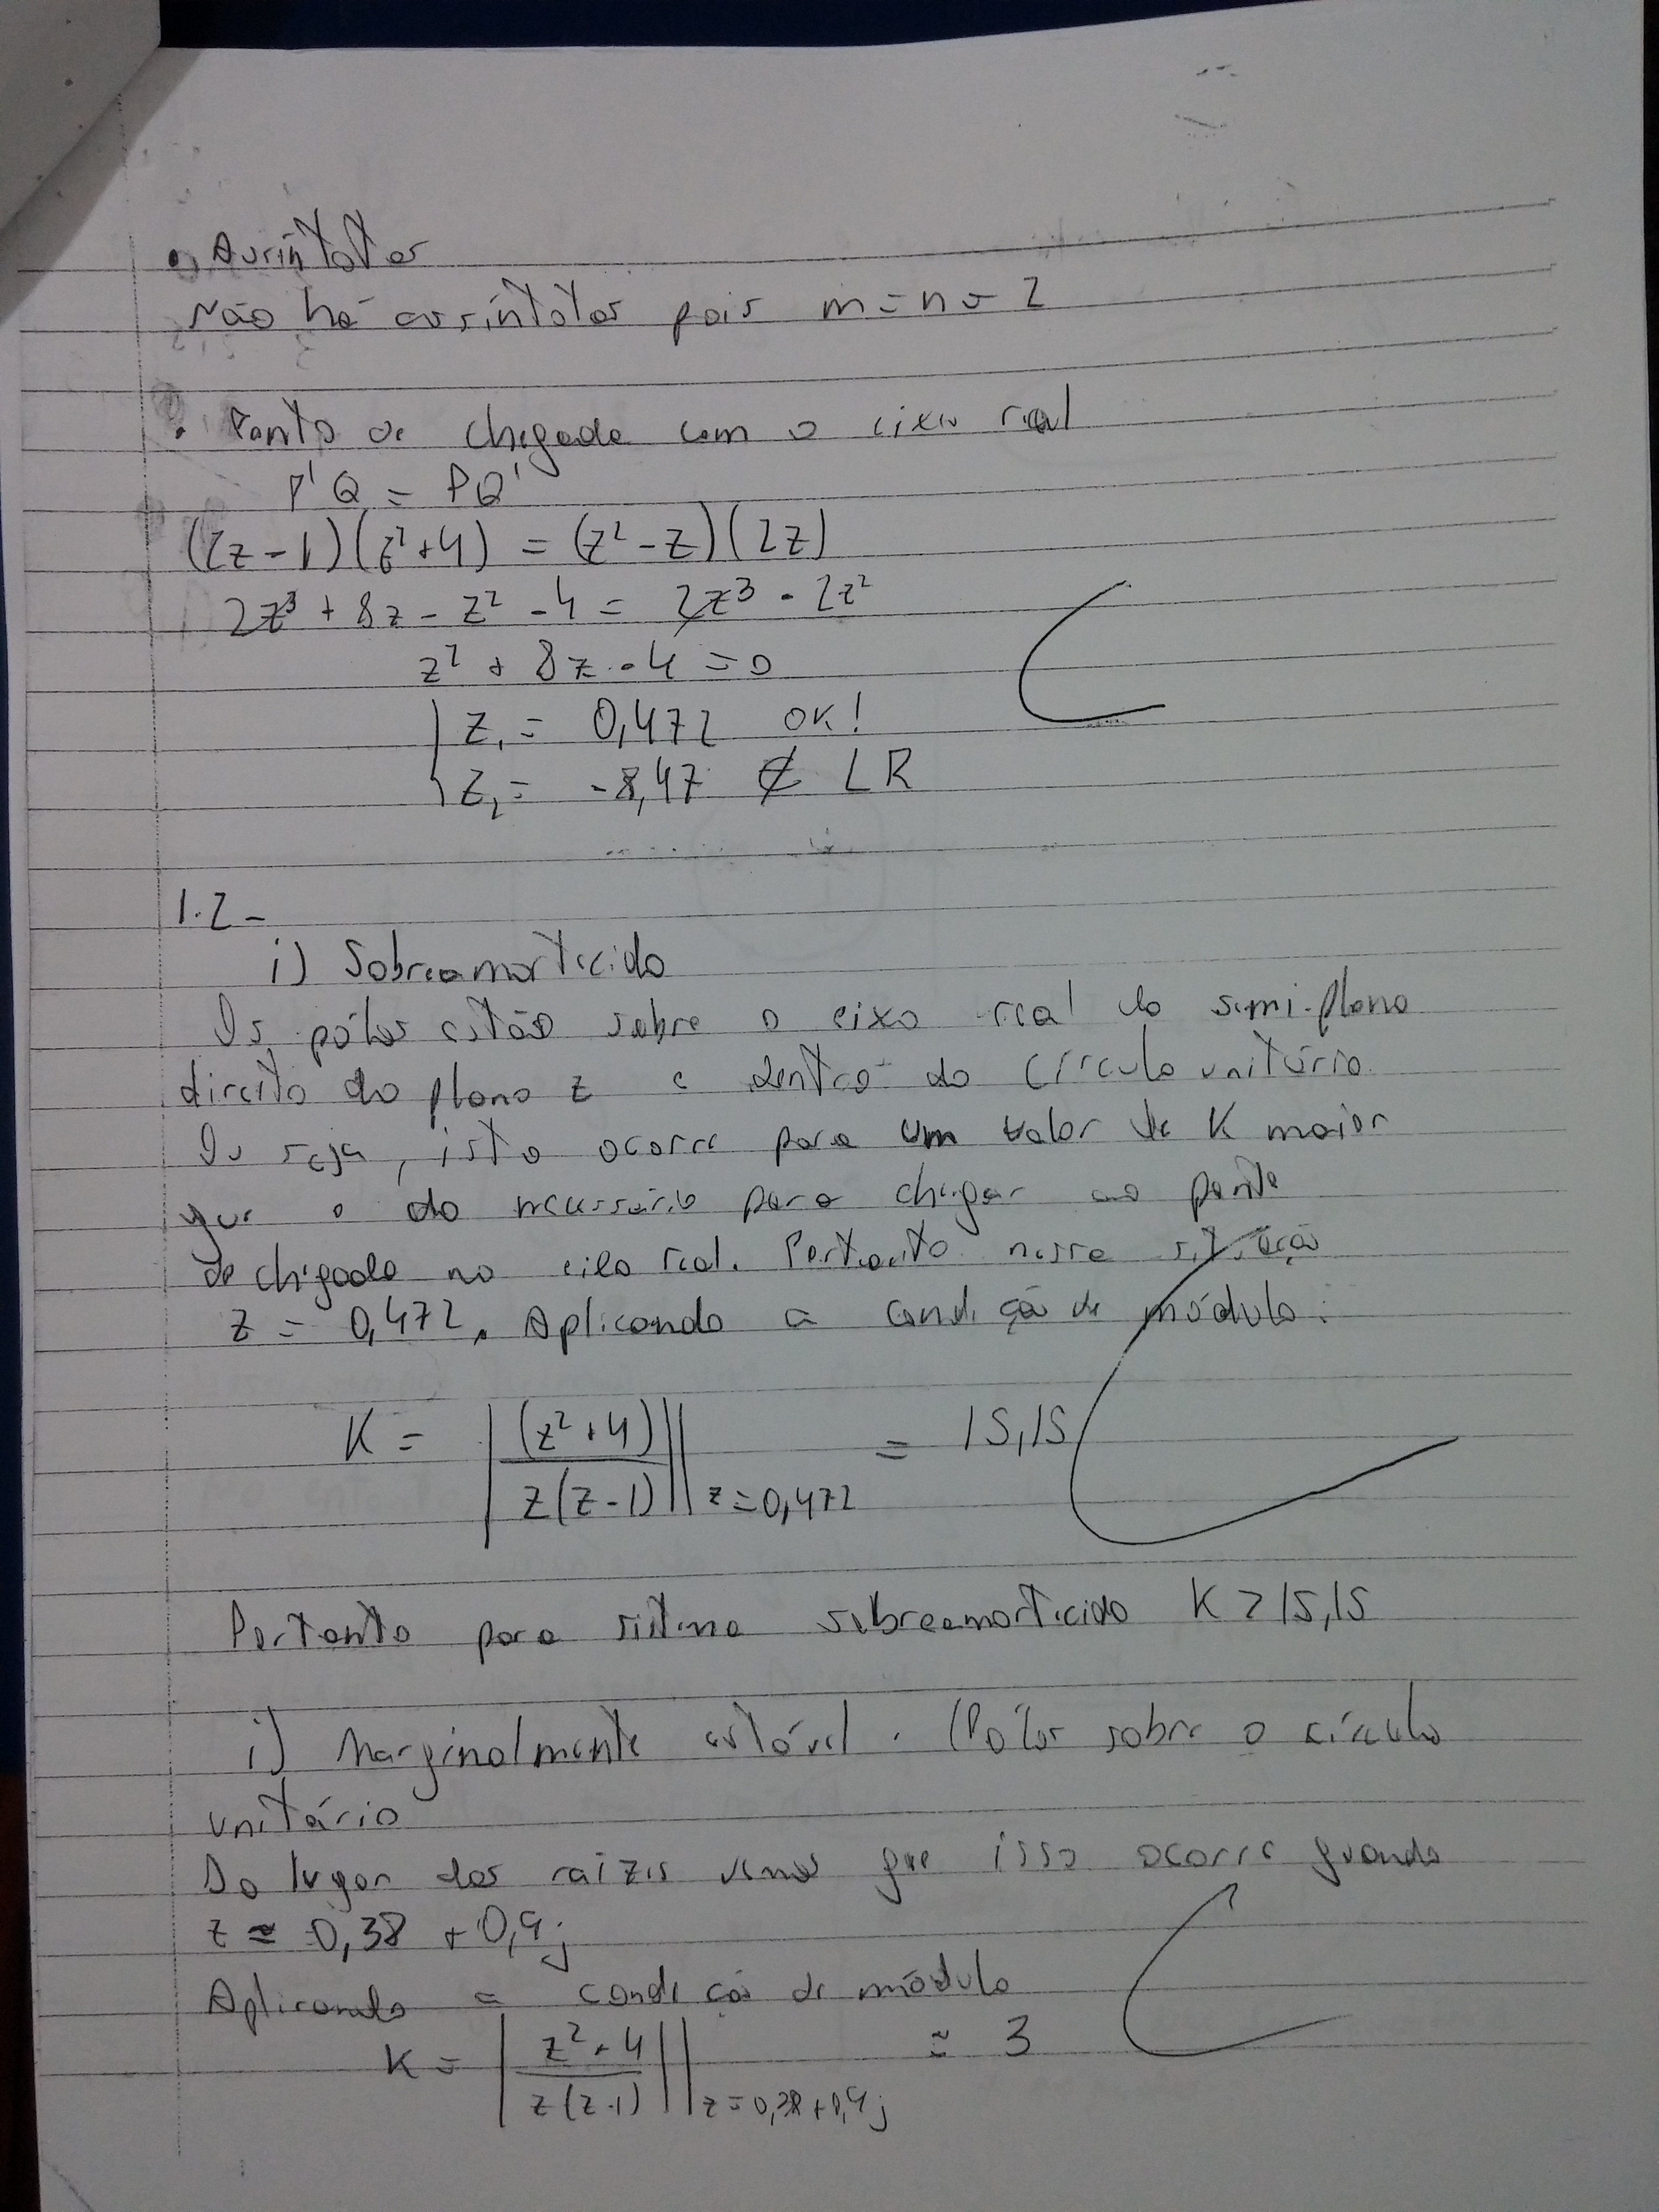 • Assíntotas
Não há assíntotas pois m = n = 2
• Ponto de chegada com o eixo real
P'Q = PQ'
(2z - 1)(z² + 4) = (z² - z)(2z)
2z³ + 8z - z² - 4 = 2z³ - 2z²
z² + 8z - 4 = 0
z₁ = 0,472 OK!
z₂ = -8,47 ∉ LR
1.2 -
i) Sobreamortecido
Os pólos estão sobre o eixo real do semi-plano
direito do plano z e dentro do círculo unitário
Ou seja, isto ocorre para um valor de K maior
que o do necessário para chegar ao ponto
de chegada no eixo real. Portanto nessa situação
z = 0,472. Aplicando a condição de módulo:
K = |(z² + 4) / z(z - 1)| | z = 0,472 = 15,15
Portanto para sistema sobreamortecido K > 15,15
i) Marginalmente estável. (Pólos sobre o círculo
unitário
Do lugar das raízes vemos que isso ocorre quando
z ≈ 0,38 + 0,9j
Aplicando a condição de módulo
K = |z² + 4 / z(z - 1)| | z = 0,38 + 0,9j ≈ 3